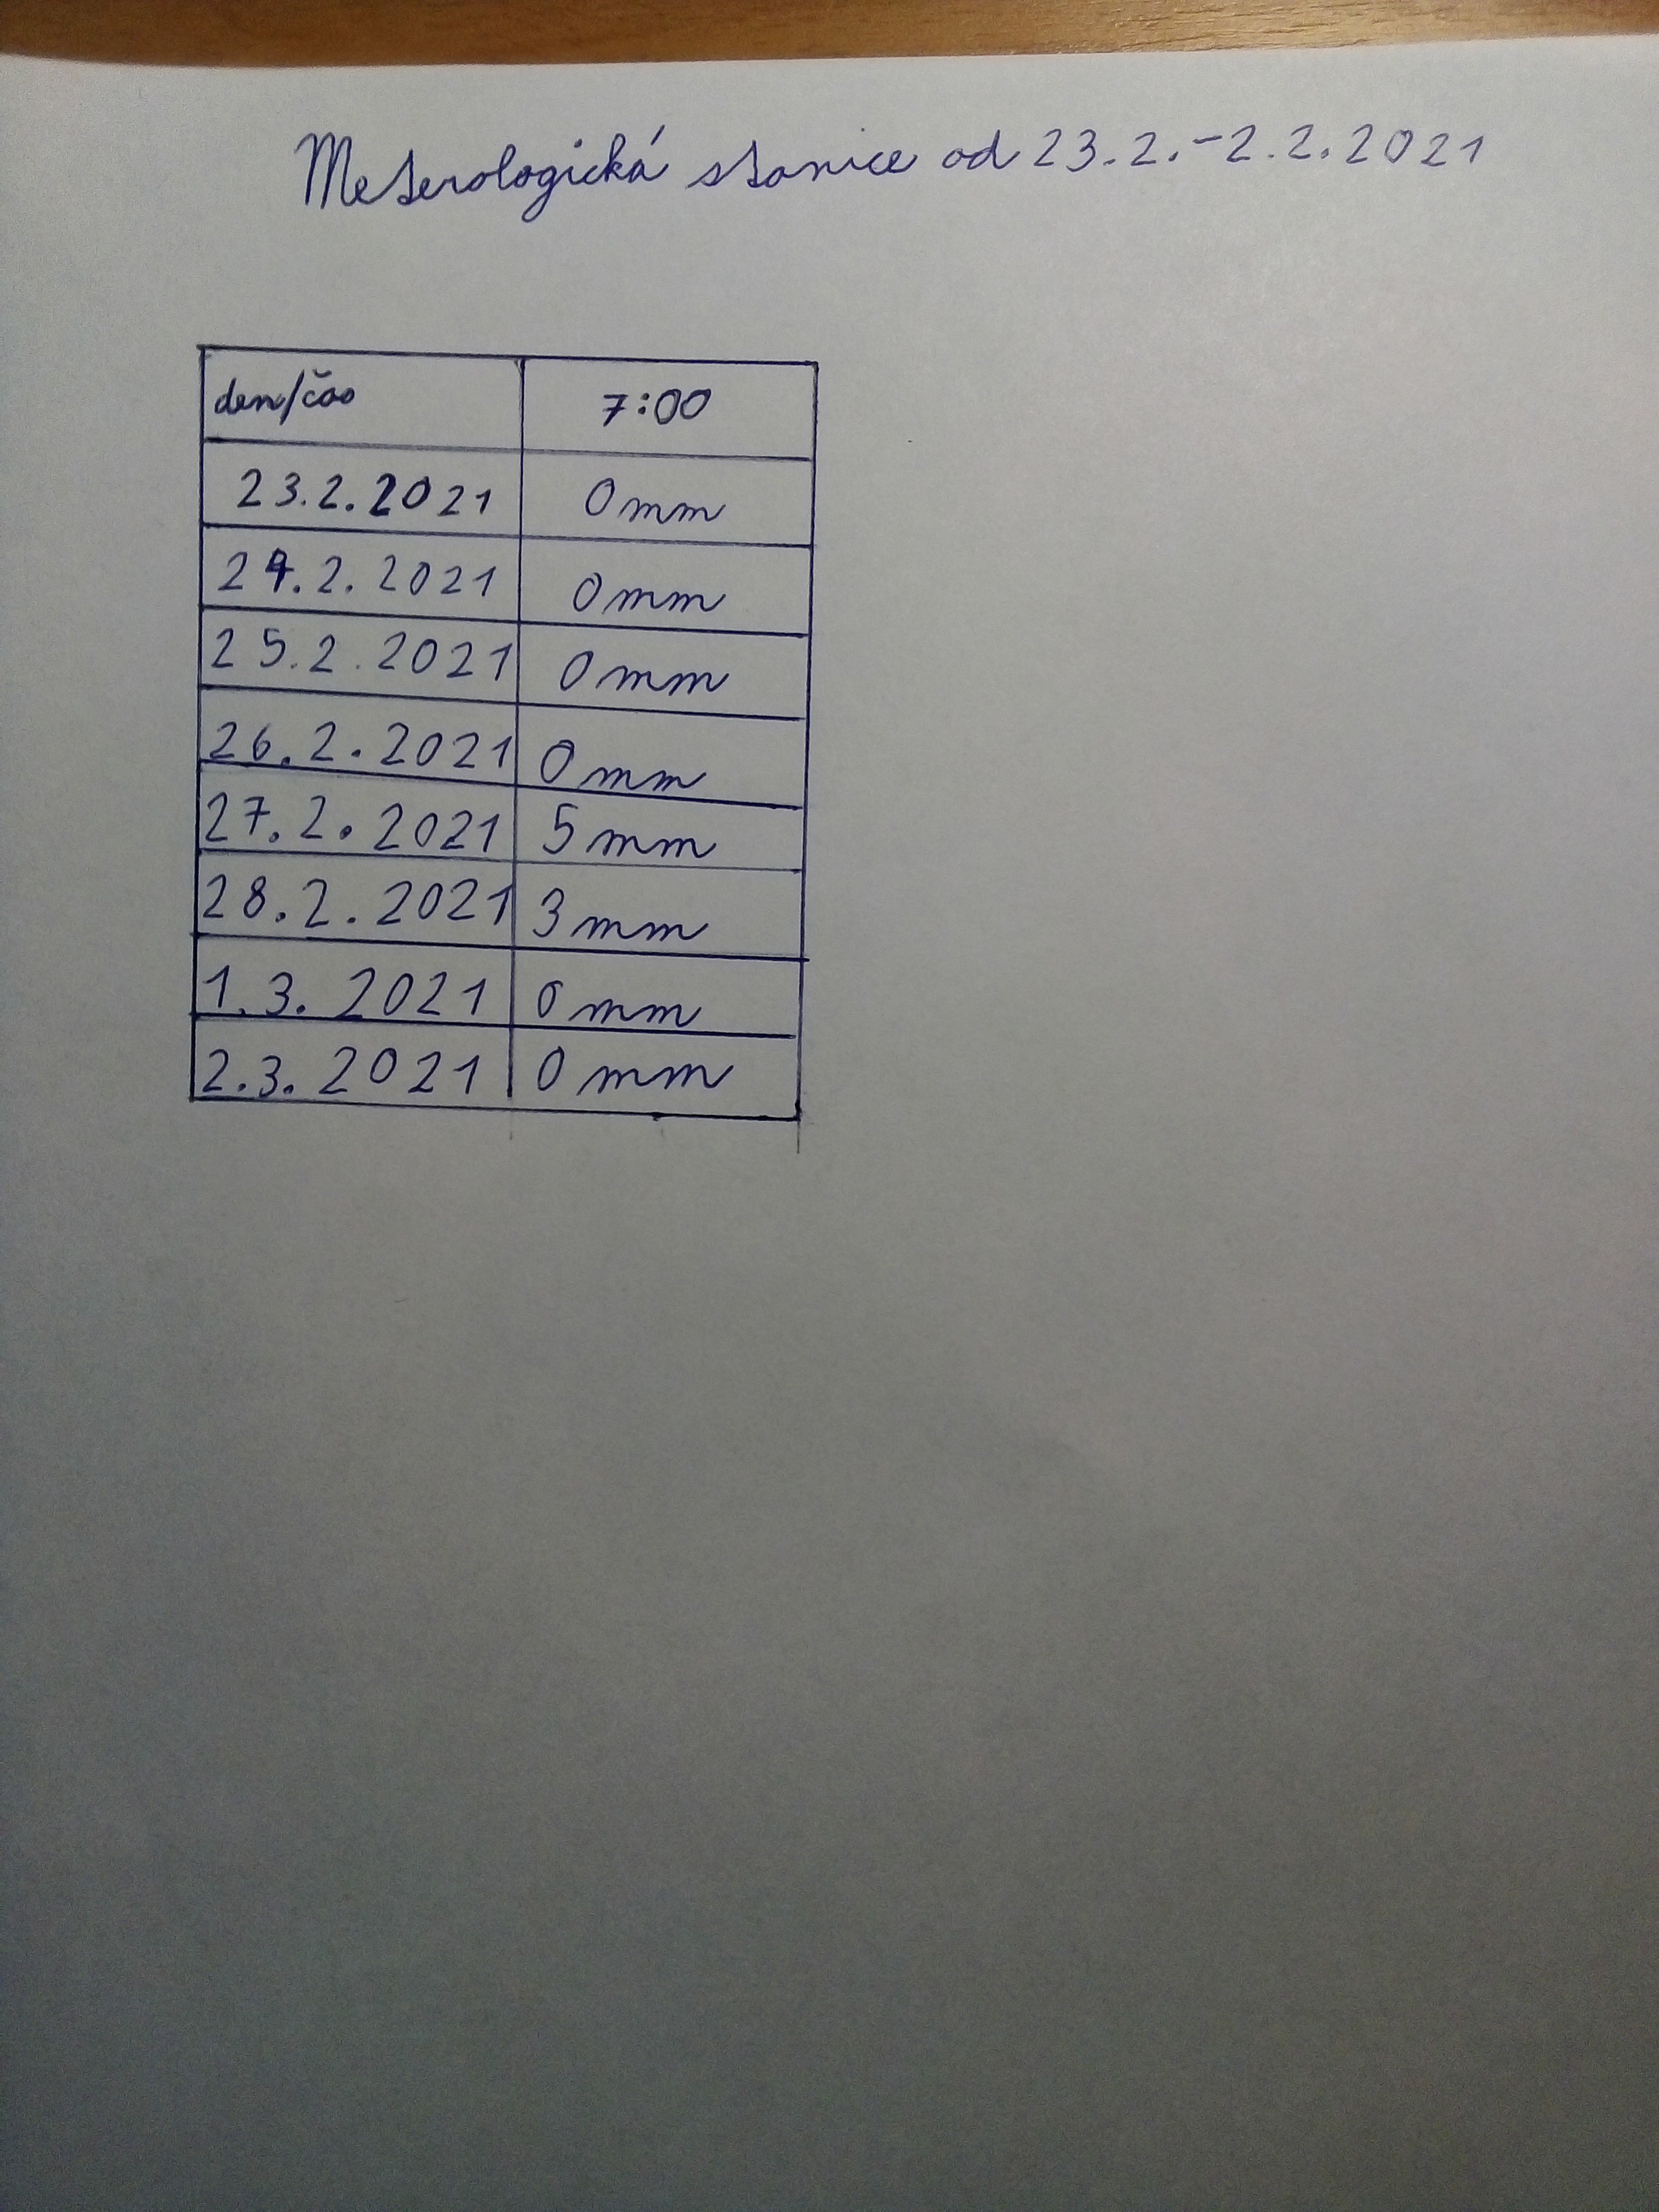 Meterologická stanice od 23.2.-2.2.2021
den/čas 7:00
23.2.2021 0mm
24.2.2021 0mm
25.2.2021 0mm
26.2.2021 0mm
27.2.2021 5mm
28.2.2021 3mm
1.3.2021 0mm
2.3.2021 0mm